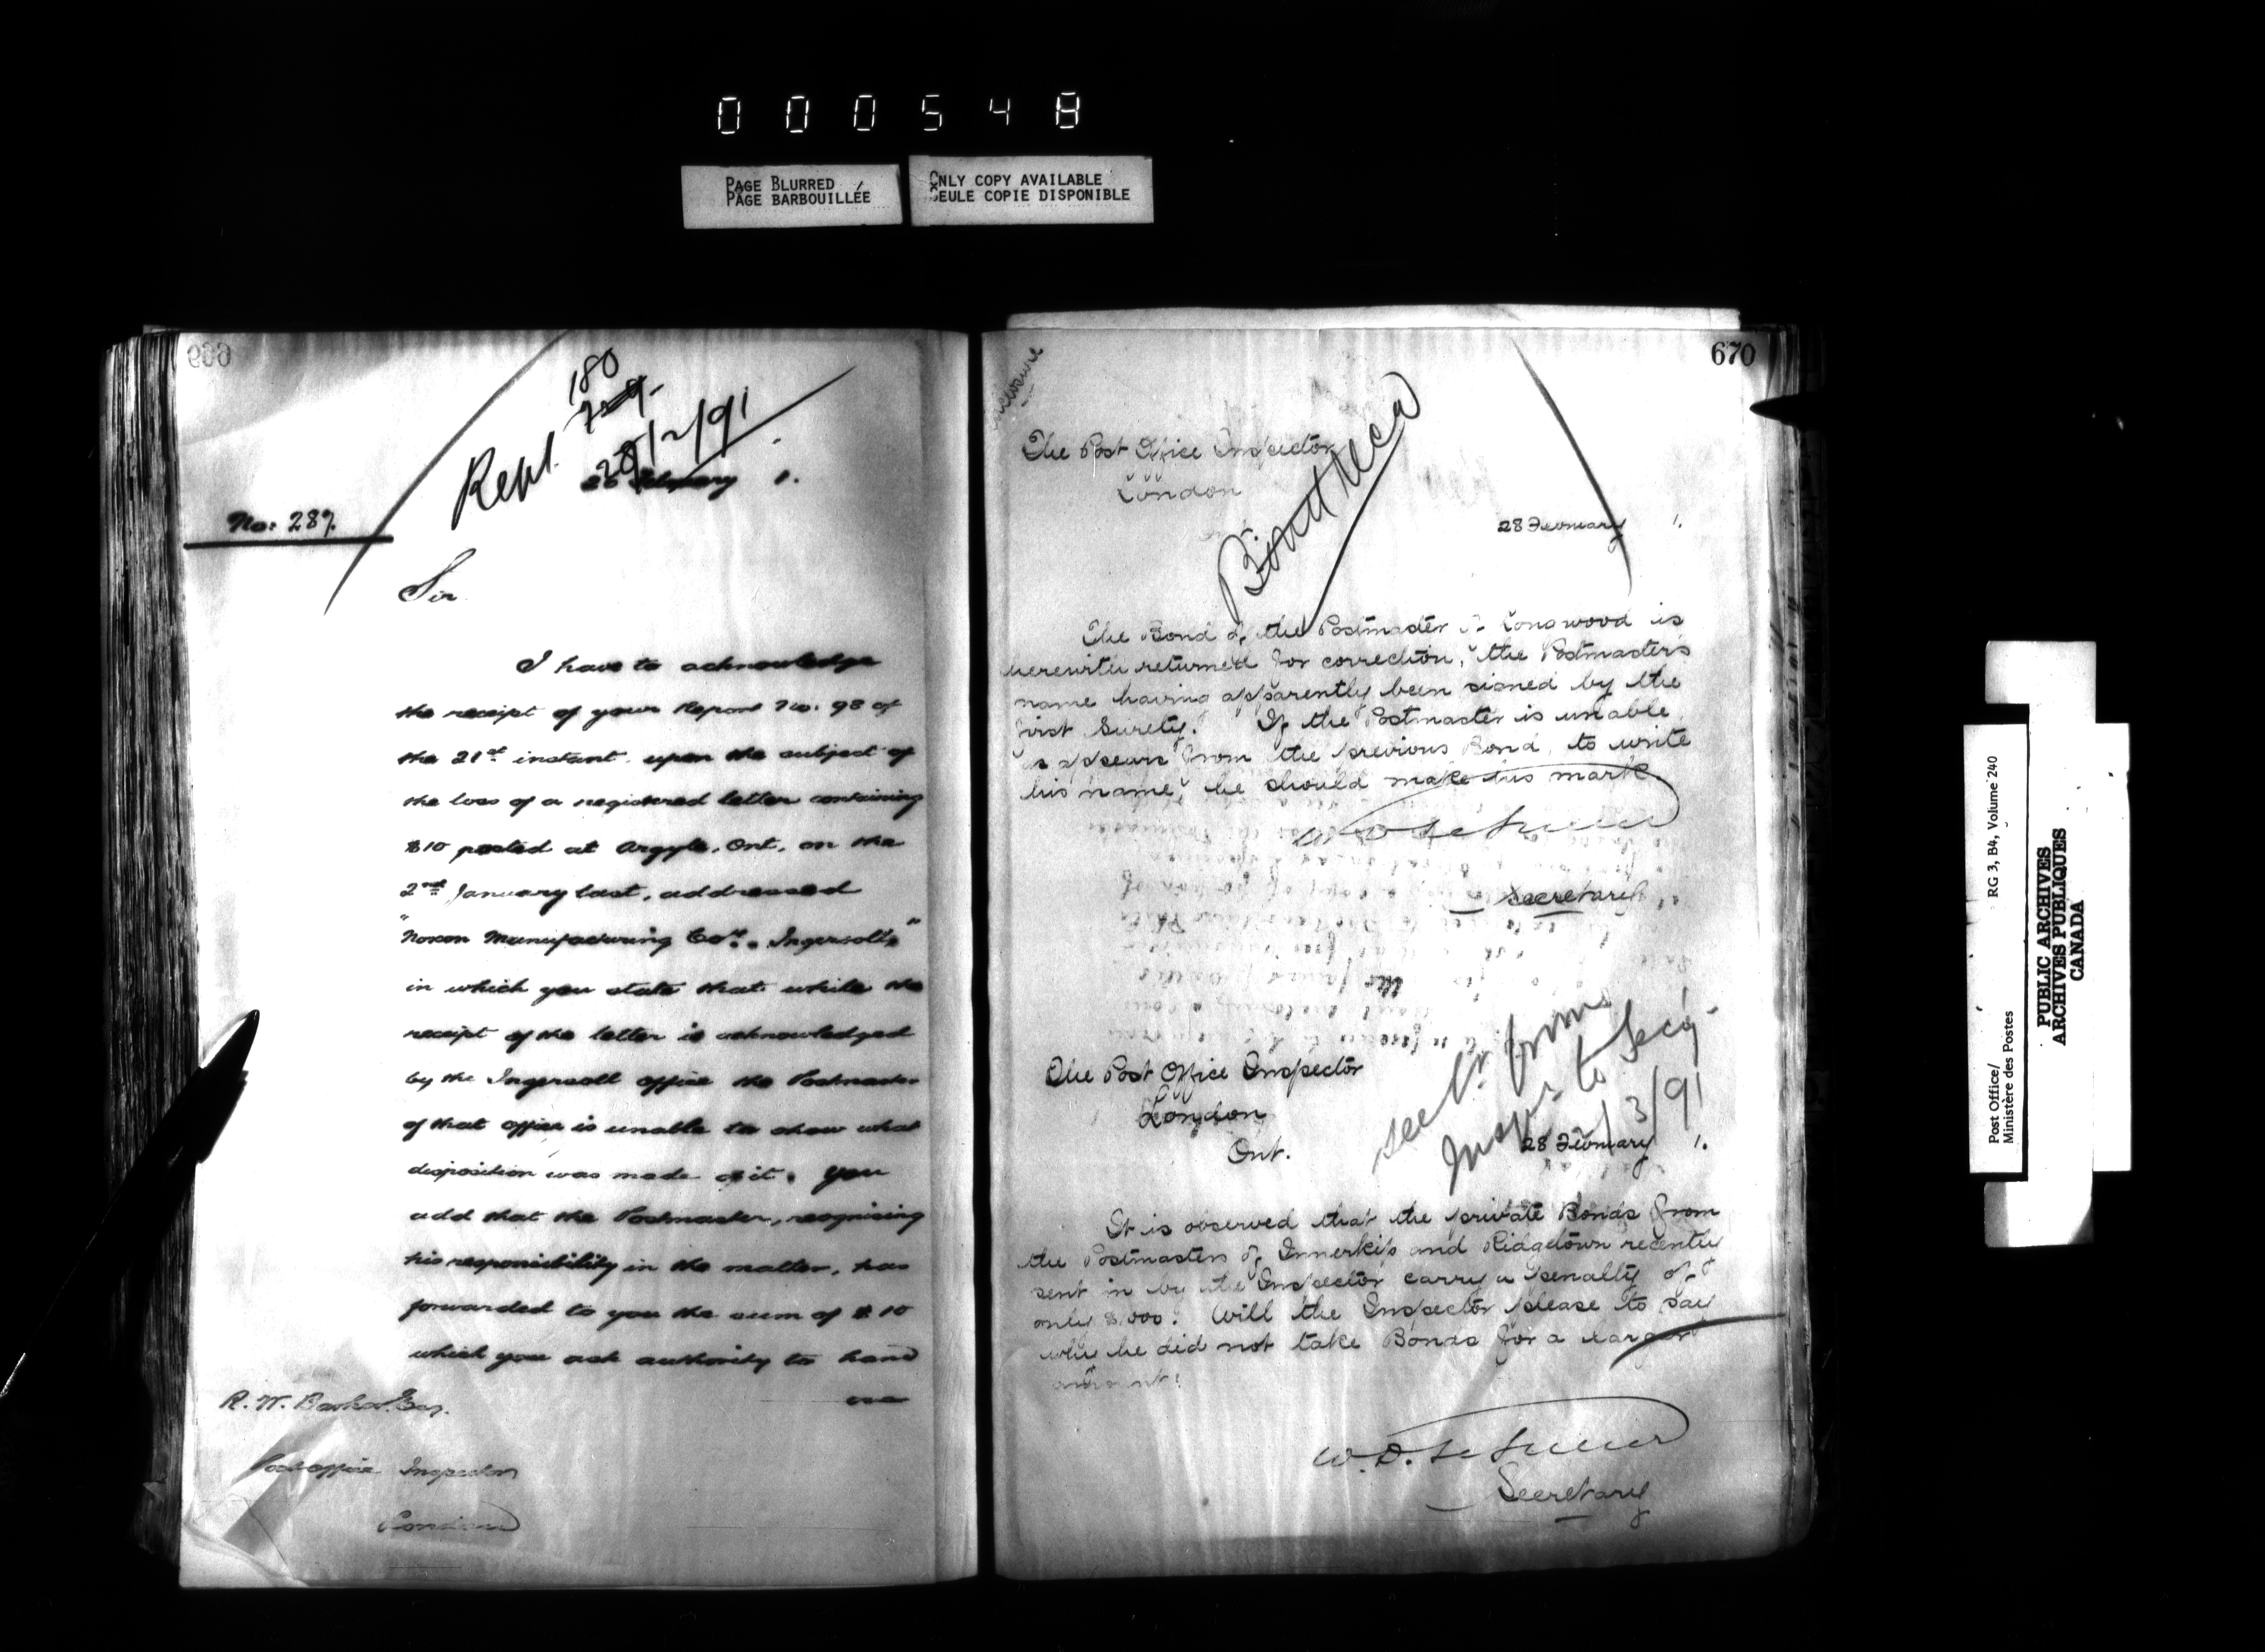 000548
PAGE BLURRED
PAGE BARBOUILLÉE
ONLY COPY AVAILABLE
SEULE COPIE DISPONIBLE
669
180
Rept. 28/2/91
26 February 1.
No: 287.
Sir
I have to acknowledge
the receipt of your Report No. 98 of
the 21st instant upon the subject of
the loss of a registered letter containing
$10 posted at Argyle, Ont, on the
2nd January last, addressed
"Noxon Manufacturing Coy. Ingersoll,"
in which you state that while the
receipt of the letter is acknowledged
by the Ingersoll office the Postmaster
of that office is unable to show what
disposition was made of it. You
add that the Postmaster, recognising
his responsibility in the matter, has
forwarded to you the sum of $10
which you ask authority to hand
over
R. W. Barker Esq.
Post Office Inspector
London
670
Enclosure
The Post Office Inspector
London
28 February 1.
The Bond of the Postmaster of Longwood is
herewith returned for correction, the Postmaster's
name having apparently been signed by the
first Surety. If the Postmaster is unable,
as appears from the previous Bond, to write
his name, he should make his mark.
Secretary
The Post Office Inspector
London
Ont.
see Lr. from
Inspr to Secy
2/3/91
28 February 1.
It is observed that the private Bonds from
the Postmasters of Innerkip and Ridgetown recently
sent in by the Inspector carry a penalty of
only Will the Inspector please to say
why he did not take Bonds for a larger
amount?
W. D. LeSueur
Secretary
Post Office/ RG 3, B4, Volume 240
Ministère des Postes
PUBLIC ARCHIVES
ARCHIVES PUBLIQUES
CANADA